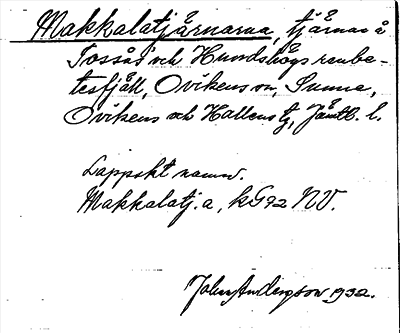 Makkalatjårnarna, tjårnar å
Tossås och Hundshögs renbe-
tesfjäll, Ovikens sn, Sunne,
Ovikens och Hallens tg, Jämtl. l.
Lappskt namn.
Makkalatj.a, kG 92 NV.
John Andersson 1932.